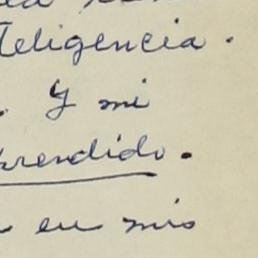 teligencia.
. Y mi
prendido.
en mis